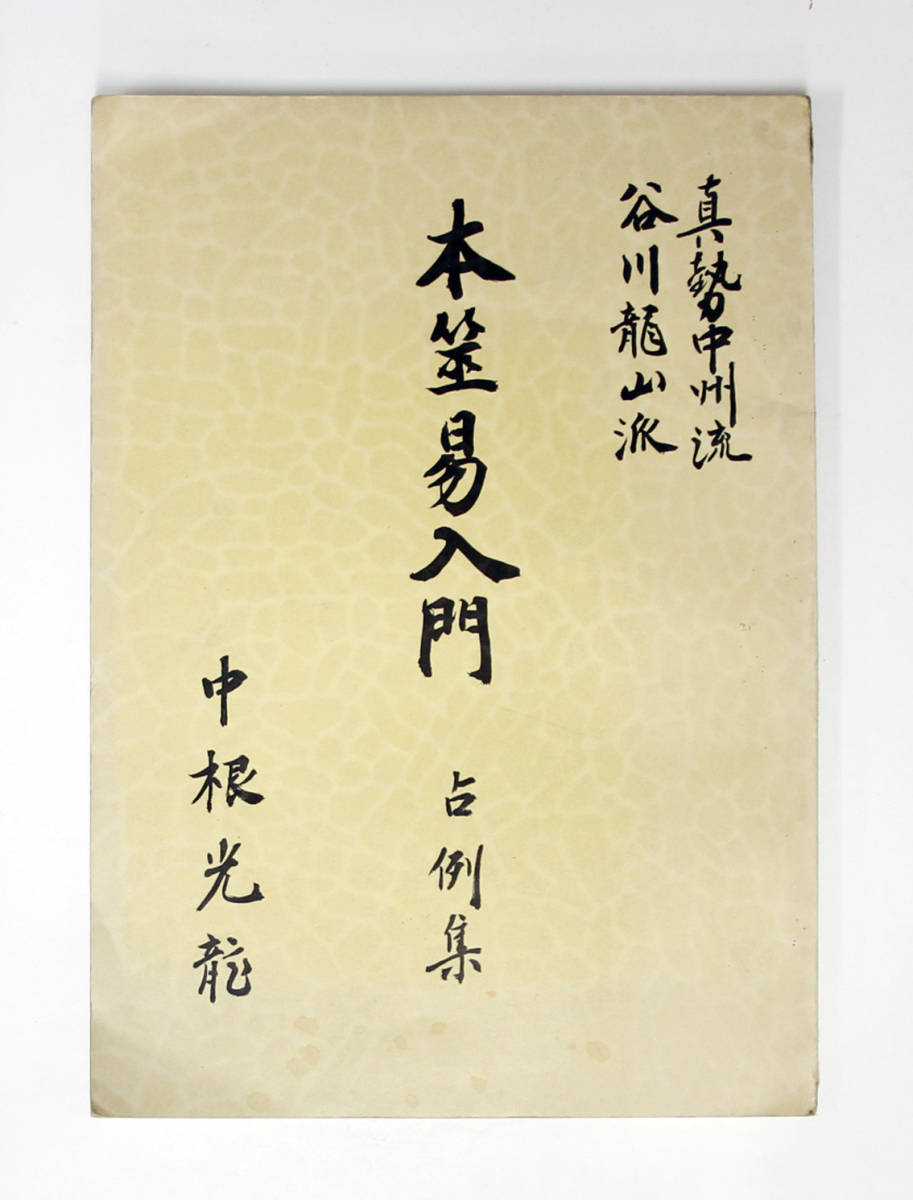 真勢中州流
谷川龍山派
本筮易入門 占例集
中根光龍